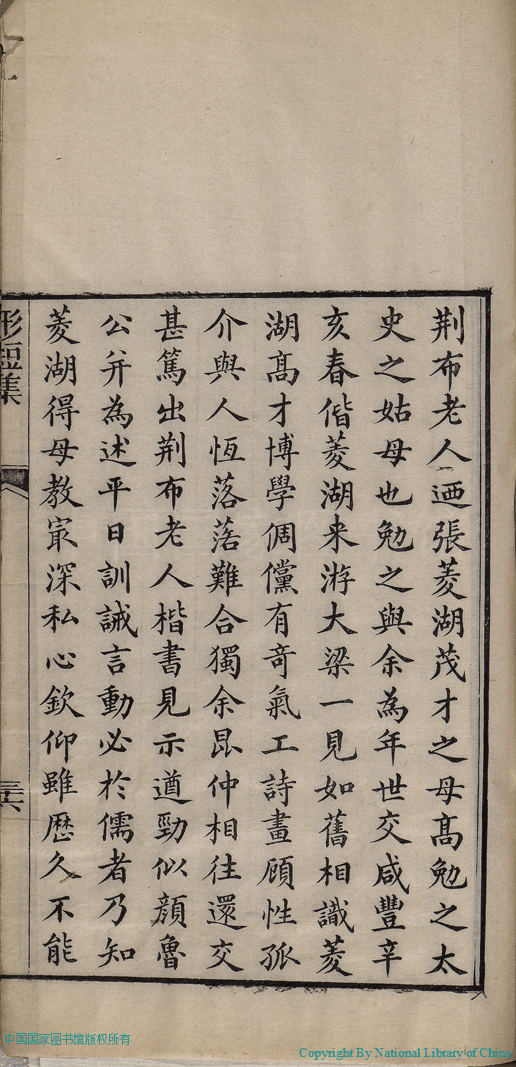 荆布老人迺張菱湖茂才之母高勉之太
史之姑母也勉之與余為年世交咸豐辛
亥春偕菱湖来游大梁一見如舊相識菱
湖高才博學倜儻有竒氣工詩畫顾性孤
介與人恆落落難合獨余昆仲相往還交
甚篤出荆布老人楷書見示遒勁似顔魯
公并為述平日訓誡言動必於儒者乃知
菱湖得母教冣深私心欽仰雖歷久不能
形短集
三六
中国国家图书馆版权所有
Copyright By National Library of China